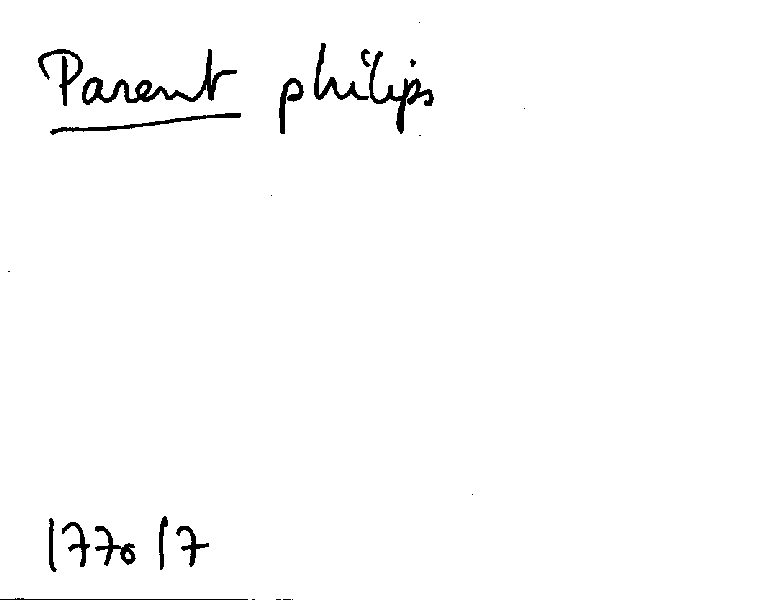 Parent philips
1770/7